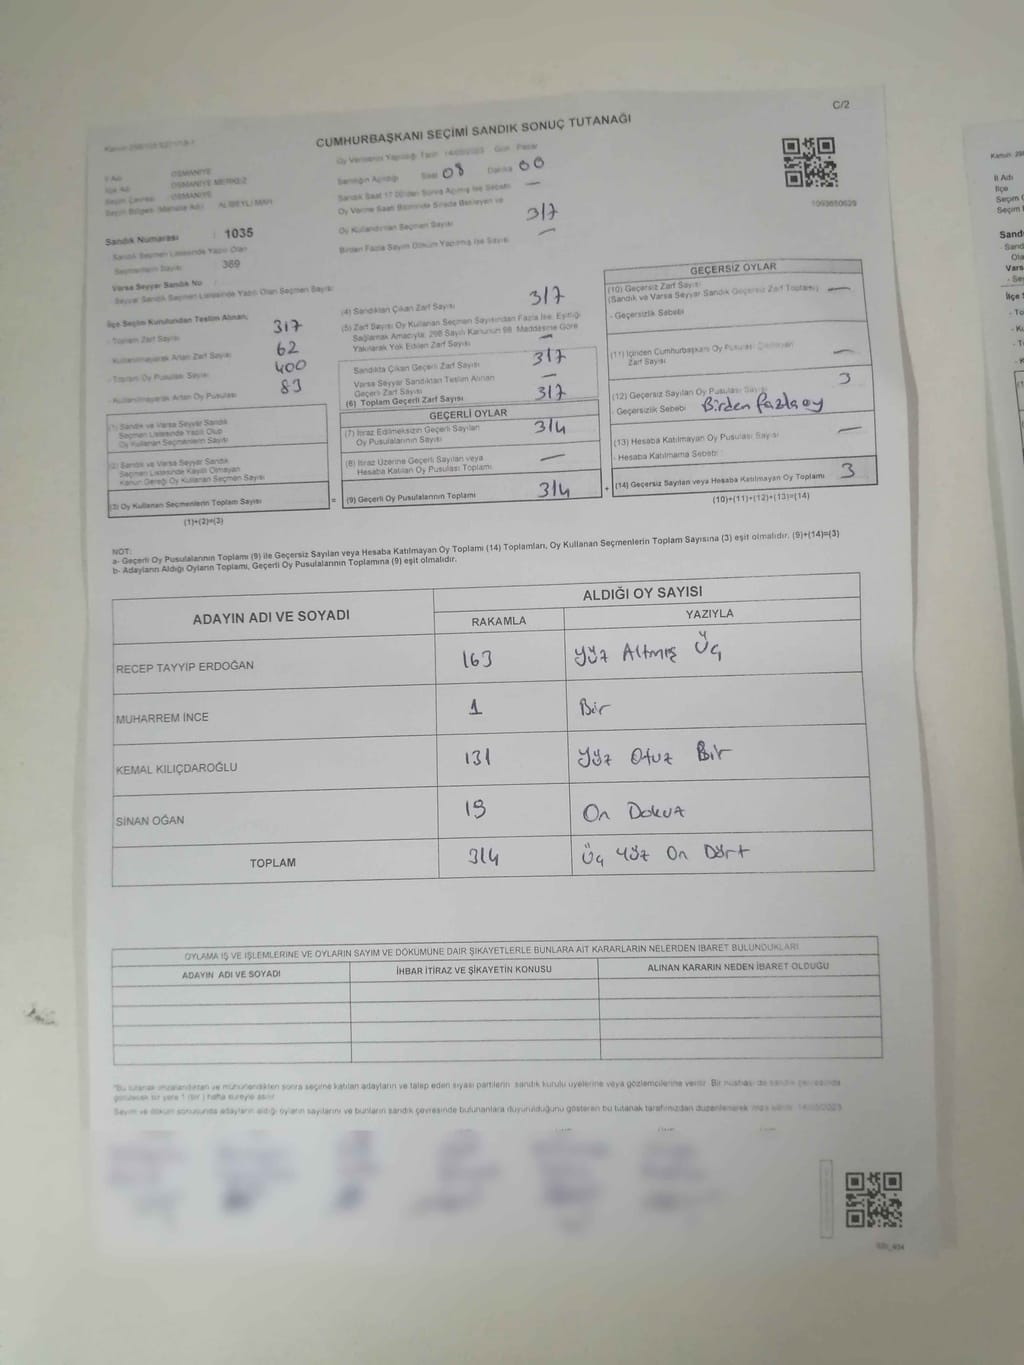 C/2
CUMHURBAŞKANI SEÇİMİ SANDIK SONUÇ TUTANAĞI
İl Adı : OSMANİYE
İlçe Adı : OSMANİYE MERKEZ
Seçim Çevresi : OSMANİYE
Seçim Bölgesi (Mahalle Adı) : ALİBEYLİ MAH
Sandık Numarası : 1035
Sandık Seçmen Listesinde Yazılı Olan
Seçmenlerin Sayısı : 369
Varsa Seyyar Sandık No
Seyyar Sandık Seçmen Listesinde Yazılı Olan Seçmen Sayısı
Oy Vermenin Yapıldığı Tarih 14/05/2023 Gün Pazar
Sandığın Açıldığı Saat 08 Dakika 00
Sandık Saat 17.00'den Sonra Açılmış İse Sebebi —
Oy Verme Saati Bitiminde Sırada Bekleyen ve
Oy Kullandırılan Seçmen Sayısı 317
Birden Fazla Sayım Döküm Yapılmış İse Sayısı —
İlçe Seçim Kurulundan Teslim Alınan;
- Toplam Zarf Sayısı 317
- Kullanılmayarak Artan Zarf Sayısı 62
- Toplam Oy Pusulası Sayısı 400
- Kullanılmayarak Artan Oy Pusulası 83
(1) Sandık ve Varsa Seyyar Sandık
Seçmen Listesinde Yazılı Olup
Oy Kullanan Seçmenlerin Sayısı
(2) Sandık ve Varsa Seyyar Sandık
Seçmen Listesinde Kayıtlı Olmayan
Kanun Gereği Oy Kullanan Seçmen Sayısı
(3) Oy Kullanan Seçmenlerin Toplam Sayısı
(1)+(2)=(3)
(4) Sandıktan Çıkan Zarf Sayısı 317
(5) Zarf Sayısı Oy Kullanan Seçmen Sayısından Fazla İse, Eşitliği
Sağlamak Amacıyla, 298 Sayılı Kanunun 98. Maddesine Göre
Yakılarak Yok Edilen Zarf Sayısı —
Sandıkta Çıkan Geçerli Zarf Sayısı 317
Varsa Seyyar Sandıktan Teslim Alınan
Geçerli Zarf Sayısı —
(6) Toplam Geçerli Zarf Sayısı 317
GEÇERLİ OYLAR
(7) İtiraz Edilmeksizin Geçerli Sayılan
Oy Pusulalarının Sayısı 314
(8) İtiraz Üzerine Geçerli Sayılan veya
Hesaba Katılan Oy Pusulası Toplamı —
= (9) Geçerli Oy Pusulalarının Toplamı 314
GEÇERSİZ OYLAR
(10) Geçersiz Zarf Sayısı
(Sandık ve Varsa Seyyar Sandık Geçersiz Zarf Toplamı) —
- Geçersizlik Sebebi
(11) İçinden Cumhurbaşkanı Oy Pusulası Çıkmayan
Zarf Sayısı —
(12) Geçersiz Sayılan Oy Pusulası Sayısı 3
- Geçersizlik Sebebi Birden fazla oy
(13) Hesaba Katılmayan Oy Pusulası Sayısı —
- Hesaba Katılmama Sebebi :
+ (14) Geçersiz Sayılan veya Hesaba Katılmayan Oy Toplamı 3
(10)+(11)+(12)+(13)=(14)
NOT:
a- Geçerli Oy Pusulalarının Toplamı (9) ile Geçersiz Sayılan veya Hesaba Katılmayan Oy Toplamı (14) Toplamları, Oy Kullanan Seçmenlerin Toplam Sayısına (3) eşit olmalıdır. (9)+(14)=(3)
b- Adayların Aldığı Oyların Toplamı, Geçerli Oy Pusulalarının Toplamına (9) eşit olmalıdır.
ADAYIN ADI VE SOYADI ALDIĞI OY SAYISI
RAKAMLA YAZIYLA
RECEP TAYYİP ERDOĞAN 163 Yüz Altmış Üç
MUHARREM İNCE 1 Bir
KEMAL KILIÇDAROĞLU 131 Yüz Otuz Bir
SİNAN OĞAN 19 On Dokuz
TOPLAM 314 Üç Yüz On Dört
OYLAMA İŞ VE İŞLEMLERİNE VE OYLARIN SAYIM VE DÖKÜMÜNE DAİR ŞİKAYETLERLE BUNLARA AİT KARARLARIN NELERDEN İBARET BULUNDUKLARI
ADAYIN ADI VE SOYADI İHBAR İTİRAZ VE ŞİKAYETİN KONUSU ALINAN KARARIN NEDEN İBARET OLDUĞU
*Bu tutanak imzalandıktan ve mühürlendikten sonra seçime katılan adayların ve talep eden siyasi partilerin sandık kurulu üyelerine veya gözlemcilerine verilir. Bir nüshası da sandık çevresinde
görülecek bir yere 1 (bir) hafta süreyle asılır.
Sayım ve döküm sonucunda adayların aldığı oyların sayılarını ve bunların sandık çevresinde bulunanlara duyurulduğunu gösteren bu tutanak tarafımızdan düzenlenerek imza edildi. 14/05/2023